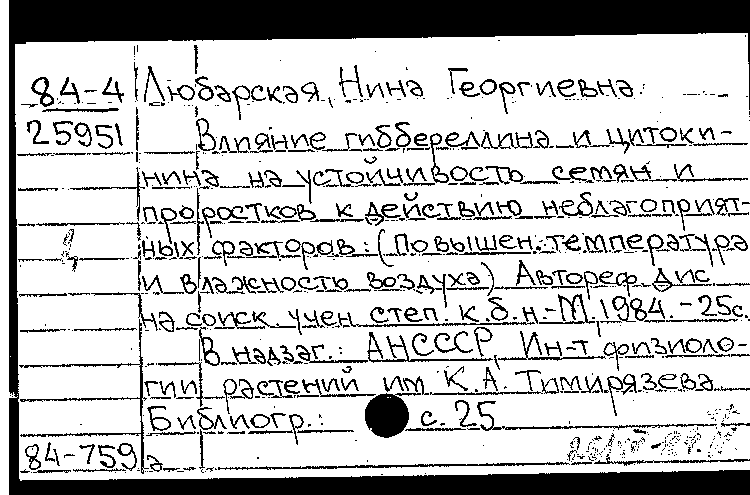 84-4 Любарская, Нина Георгиевна.
25951 Влияние гиббереллина и цитоки-
нина на устойчивость семян и
проростков к действию неблагоприят-
ных факторов: (Повышен. температура
и влажность воздуха) Автореф дис
на соиск. учен степ. к.б.н.-М., 1984.-25с.
В надзаг.: АНСССР, Ин-т физиоло-
гии растений им К.А. Тимирязева
Библиогр.: с. 25
84-759 а